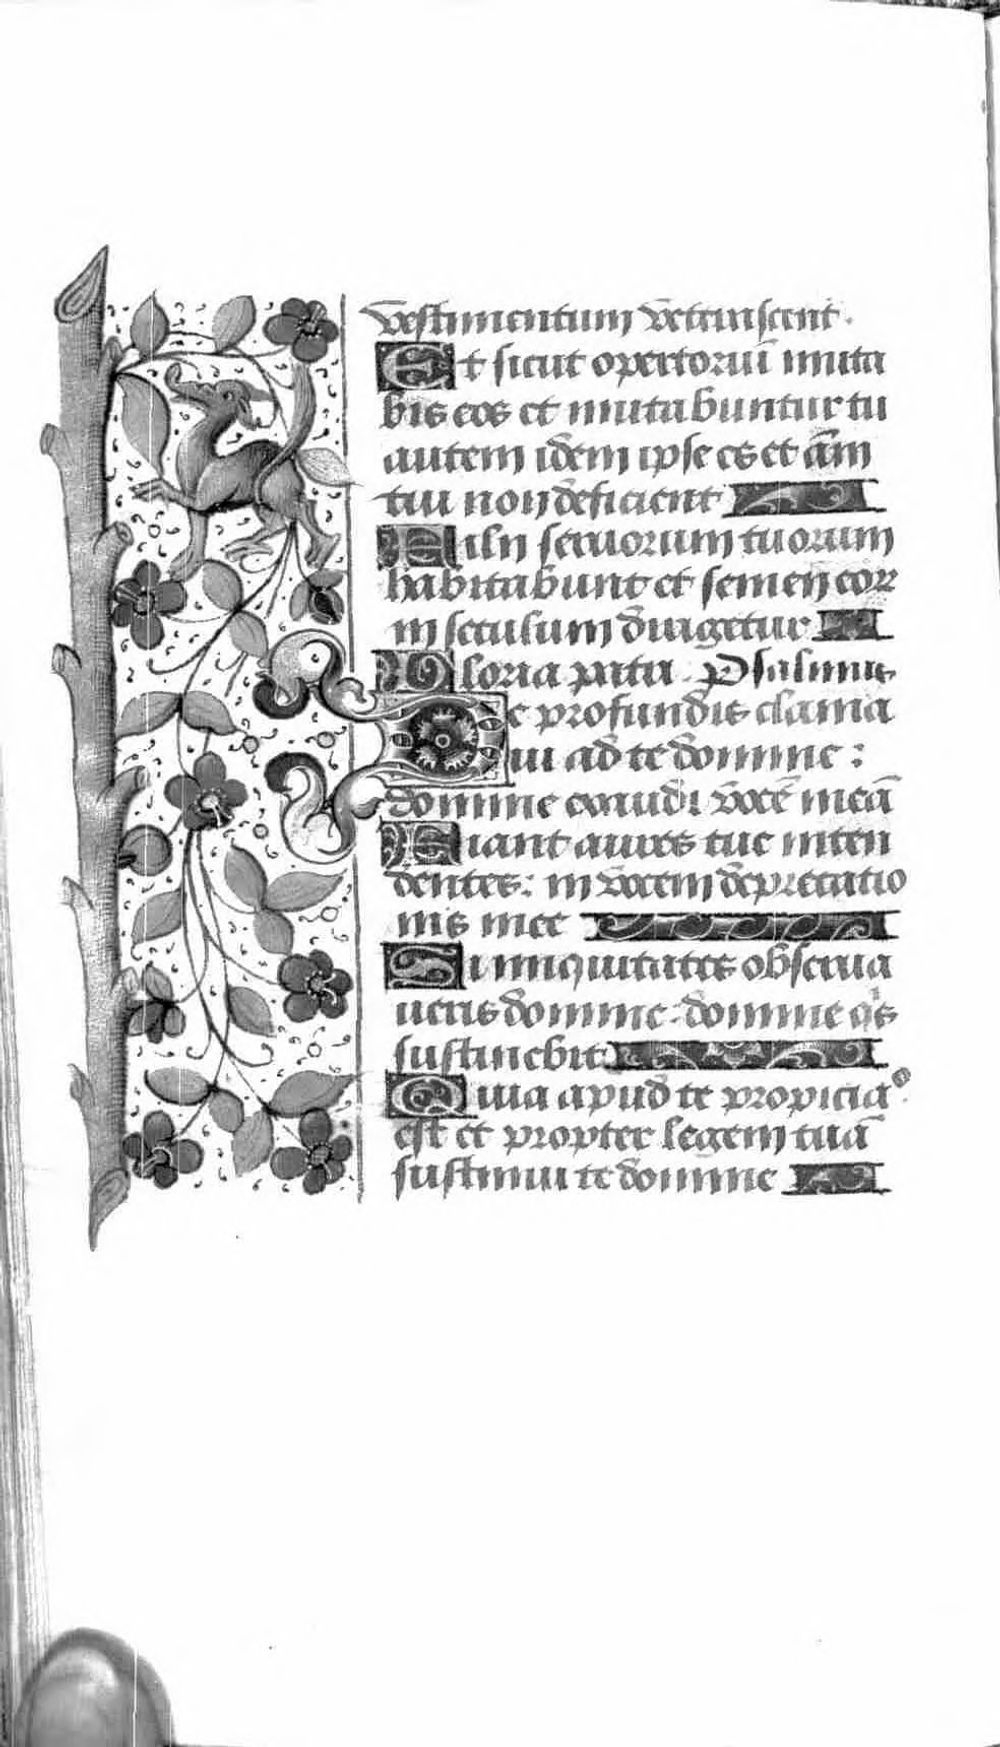 vestimentum veterascent.
Et sicut opertoriū muta
bis eos et mutabuntur tu
autem idem ipse es et ām
tui non deficient
Filii seruorum tuorum
habitabunt et semen eorꝝ
in seculum dirigetur
Gloria patri. Psalmus
De profundis clama
ui ad te domine:
domine exaudi vocē meā
Fiant aures tue inten
dentes: in vocem deprecatio
nis mee
Si iniquitates obserua
ueris domine: domine qͥs
sustinebit
Quia apud te propicia⁹
est et propter legem tuā
sustinui te domine